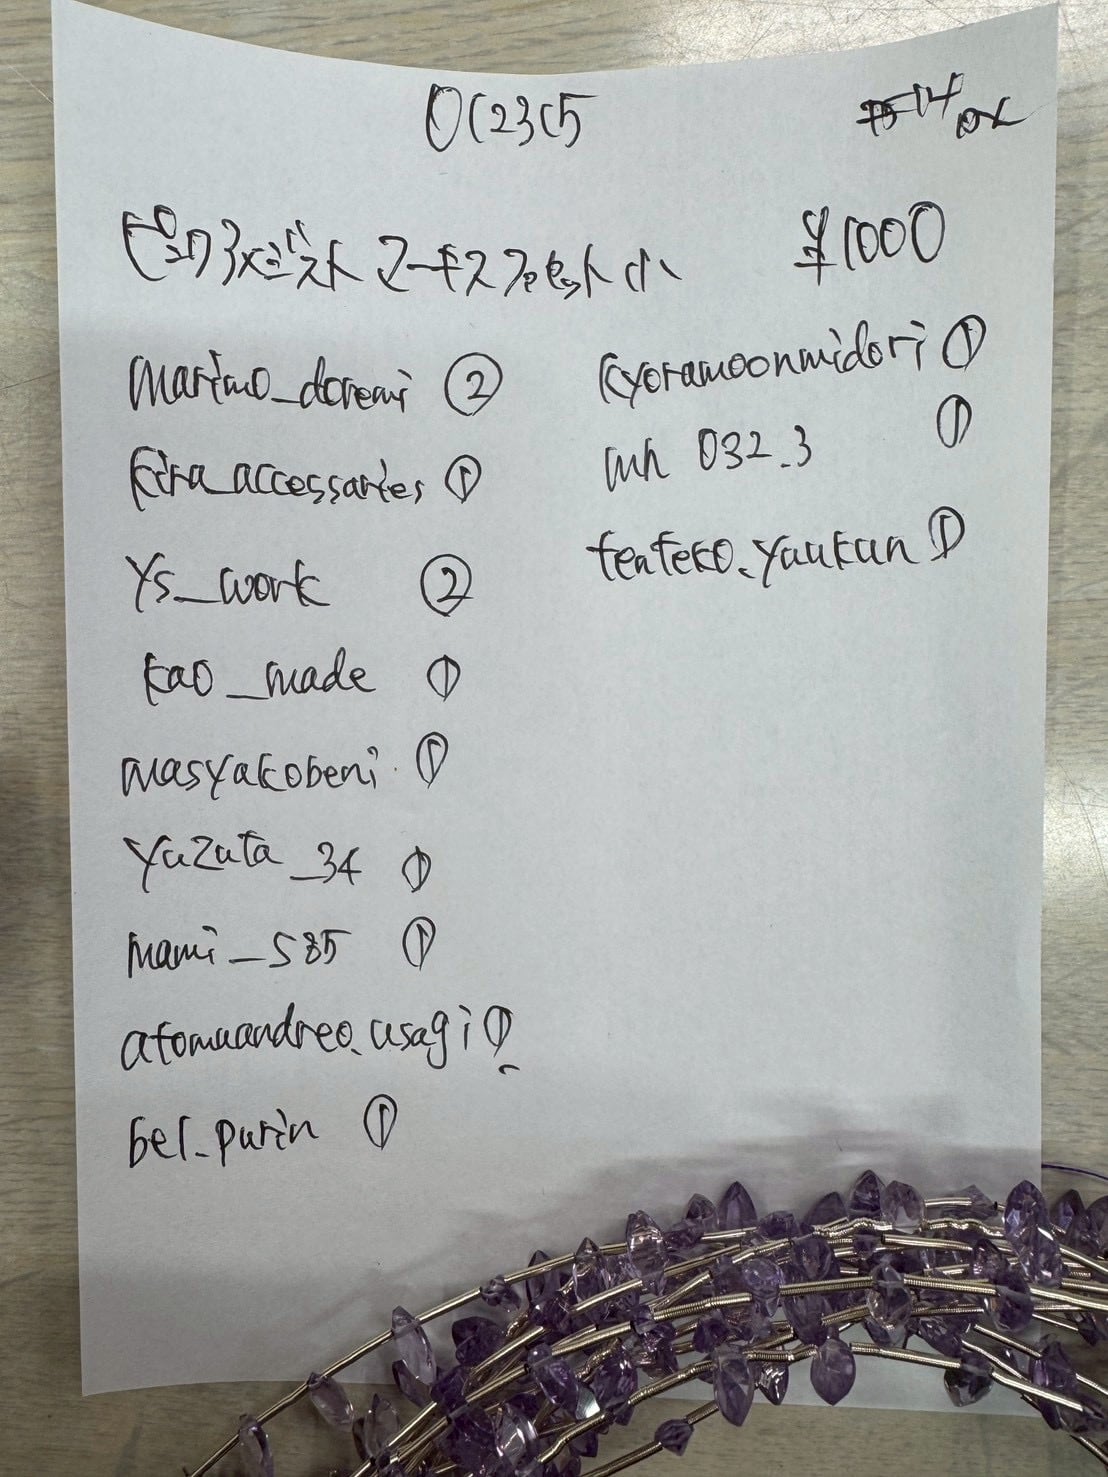 0(23(5
14
ピンクアメジスト マーキスファセット 小 ¥1000
marimo_doremi ②
kira_accessaries ①
ys_work ②
kao_made ①
masyakobeni ①
yuzuta_34 ①
mami_585 ①
atomuandreo.usagi ①
bel_purin ①
kyoramoonmidori ①
mh 032_3 ①
tenteko.yuukun ①